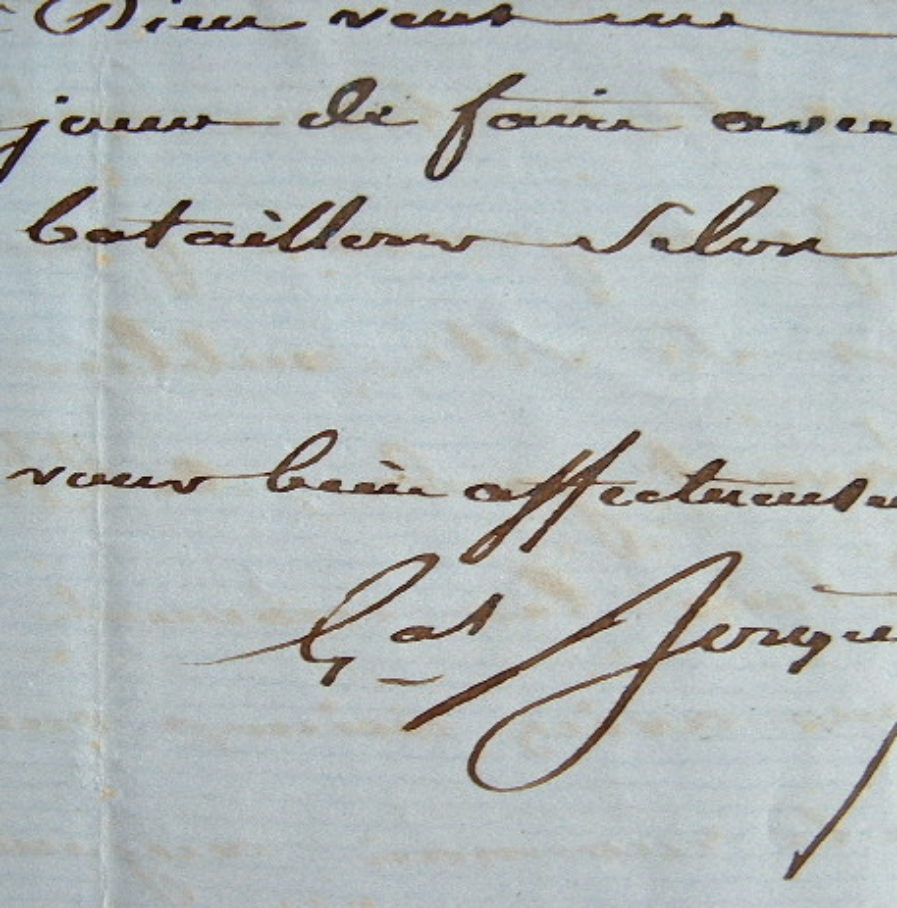 Dieu veut me
jour de faire avec
bataillons Selon
vous bien affectueuse
Gal